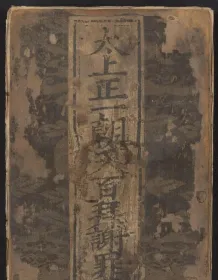 太上正一朝天百拜謝罪